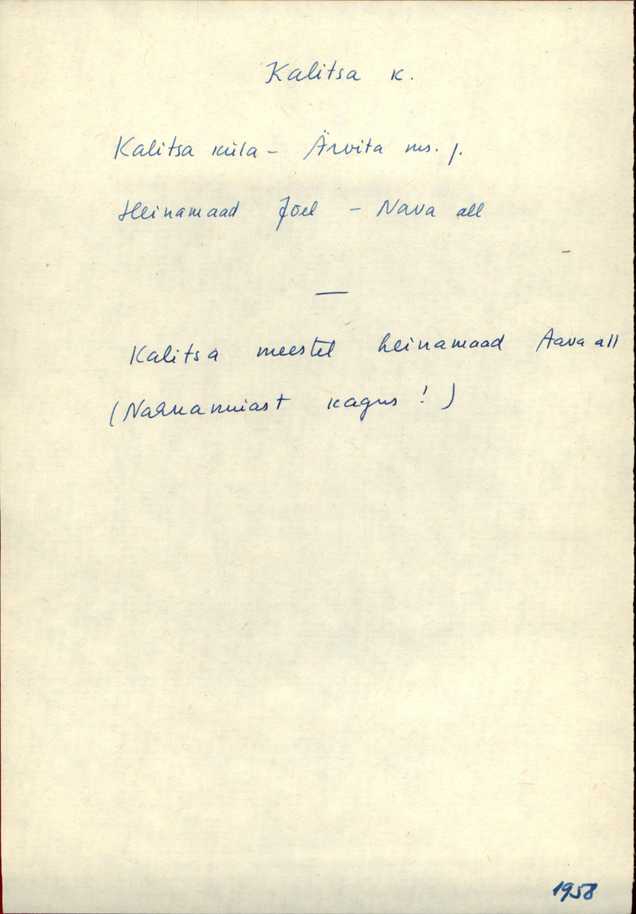 Kalitsa k.
Kalitsa küla – Ärvita ms. j.
Heinamaad Jõel – Nava all
—
Kalitsa meestel heinamaad Aava all
kagus !)
1958